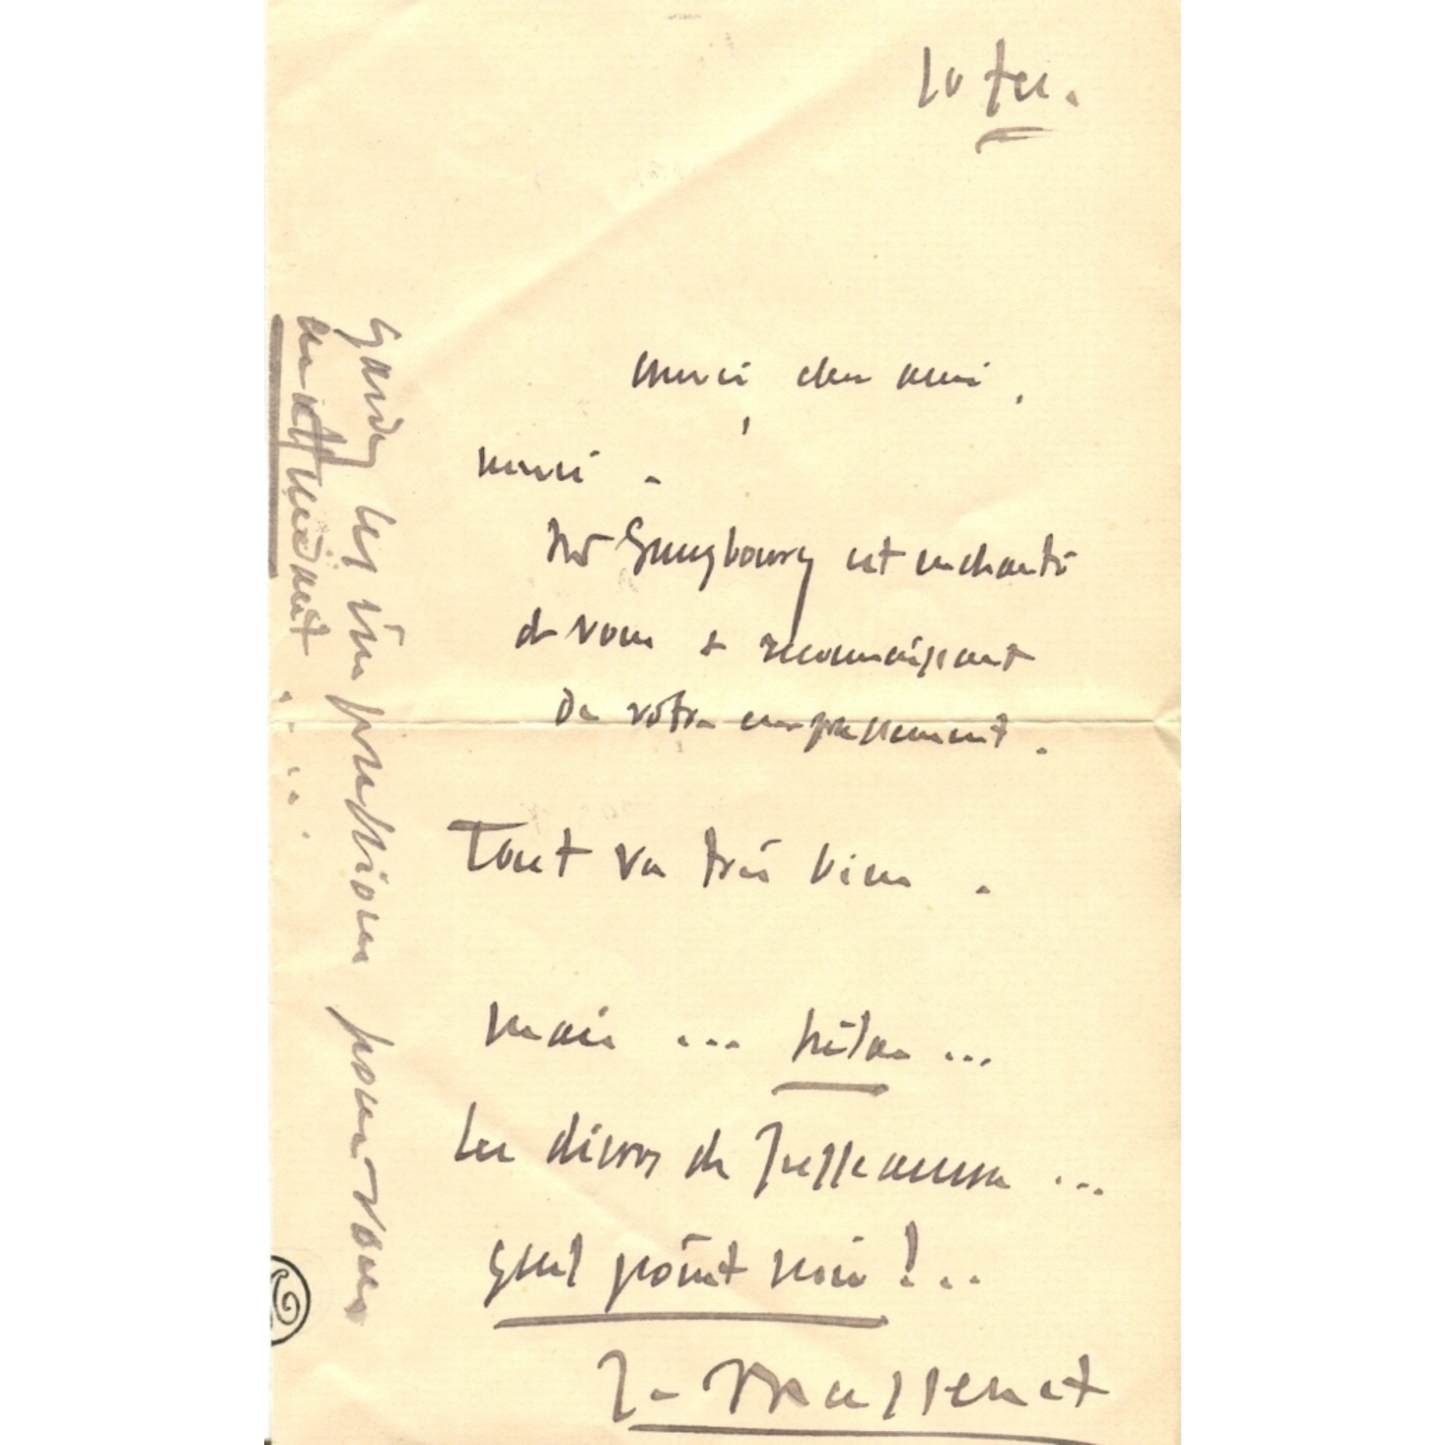 10 fév.
merci cher ami,
merci.
Mr Gunsbourg est enchanté
de vous & reconnaissant
de votre empressement.
Tout va très bien.
mais ... hélas ...
Les décors de Jusseaume ...
quel point noir !..
J. Massenet
Gardez les impressions pour vous
en attendant ....